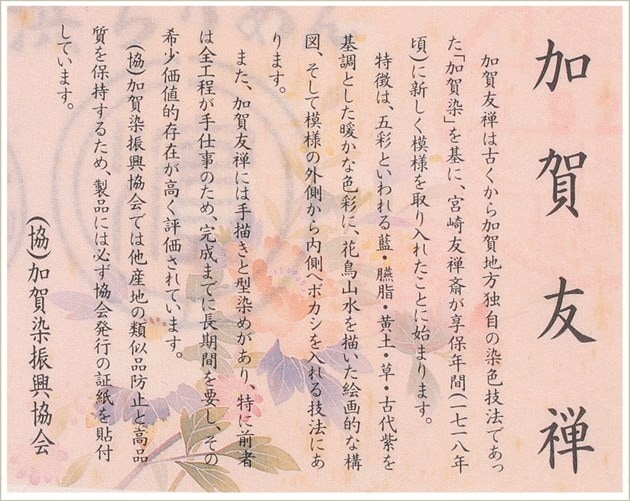 加賀友禅
加賀友禅は古くから加賀地方独自の染色技法であっ
た「加賀染」を基に、宮崎友禅斎が享保年間(一七一八年
頃)に新しく模様を取り入れたことに始まります。
特徴は、五彩といわれる藍・臙脂・黄土・草・古代紫を
基調とした暖かな色彩に、花鳥山水を描いた絵画的な構
図、そして模様の外側から内側へボカシを入れる技法にあ
ります。
また、加賀友禅には手描きと型染めがあり、特に前者
は全工程が手仕事のため、完成までに長期間を要し、その
希少価値的存在が高く評価されています。
(協)加賀染振興協会では他産地の類似品防止と高品
質を保持するため、製品には必ず協会発行の証紙を貼付
しています。
(協)加賀染振興協会